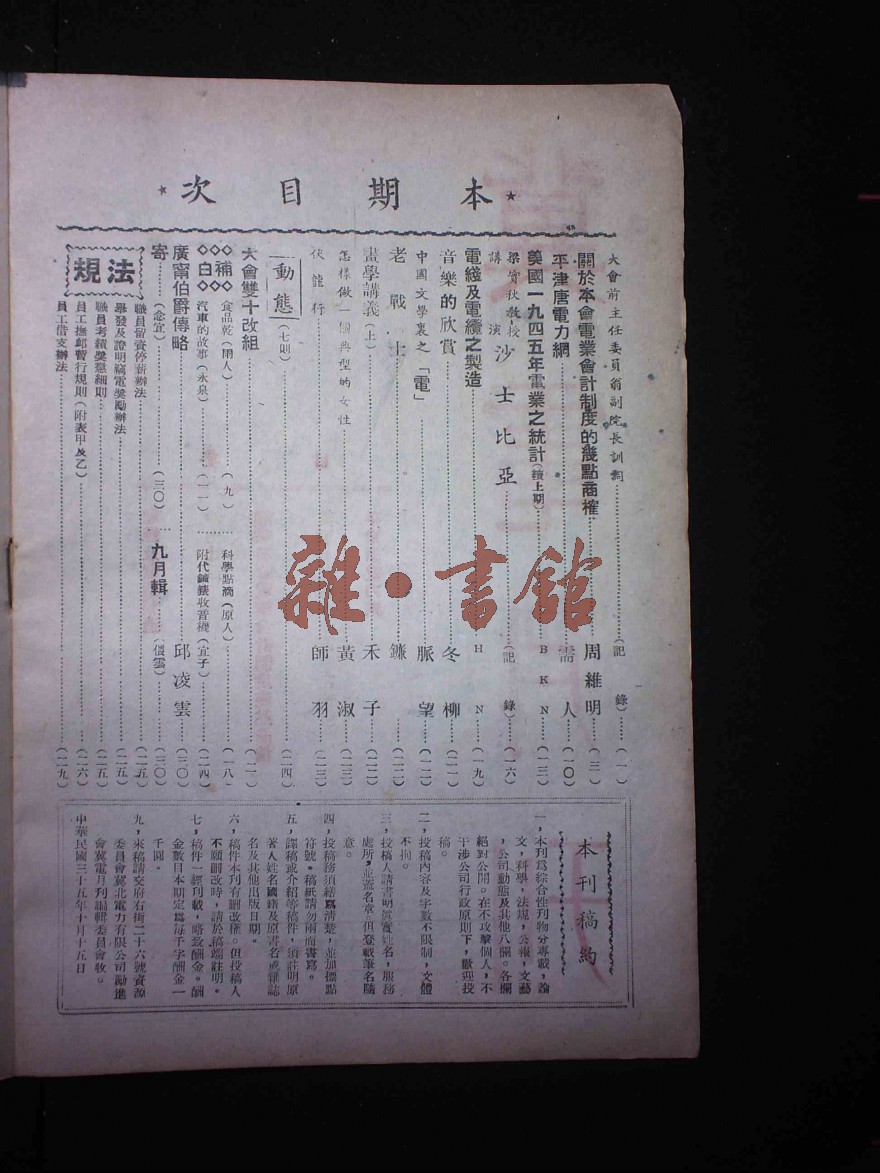 ★本期目次★
大會前主任委員翁副院長訓詞…………(記錄)……(一)
關於本會電業會計制度的幾點商榷……周維明……(三)
平津唐電力網……需人……(一〇)
美國一九四五年電業之統計(續上期)……BKN……(一三)
梁實秋教授講演 沙士比亞……(記錄)……(一六)
電綫及電纜之製造……HN……(一九)
音樂的欣賞……冬柳……(二一)
中國文學裏之「電」……脈望……(一二)
老戰士……鐮……(二二)
畫學講義(上)……禾子……(二二)
怎樣做一個典型的女性……黃淑……(二三)
俠龍行……師羽……(二三)
動態(七則)……(二四)
大會雙十改組……(二一)
補白
食品乾(閑人)……(九)……科學點滴(原人)……(一八)
汽車的故事(永泉)……(一一)
附代鐘錶收音機(宜子)……(二四)
廣甯伯爵傳略……邱凌雲……(三〇)
寄……(念宜)……(三〇)……九月輯……(偎雲)……(三〇)
法規
職員留資停薪辦法……(二五)
舉發及證明竊電獎勵辦法……(二五)
職員考績獎懲細則……(二五)
員工撫卹暫行規則(附表甲及乙)……(二六)
員工借支辦法……(二九)
本刊稿約
一，本刊為綜合性刊物分專載，論
文，科學，法規，公報，文藝
，公司動態及其他八欄。各欄
絕對公開。在不攻擊個人，不
干涉公司行政原則下，歡迎投
稿。
二，投稿內容及字數不限制，文體
不拘。
三，投稿人請書明真實姓名，服務
處所，並蓋名章。但登載筆名隨
意。
四，投稿務須繕寫清楚，並加標點
符號。稿紙請勿兩面書寫。
五，譯稿或介紹等稿件，須註明原
著人姓名國籍及原書名或雜誌
名及其他出版日期。
六，稿件本刊有刪改權。但投稿人
不願刪改時，請於稿端註明。
七，稿件一經刊載，略致酬金。酬
金數目本期定為每千字酬金一
千圓。
九，來稿請交府右街二十六號資源
委員會冀北電力有限公司勵進
會冀電月刊編輯委員會收。
中華民國三十五年十月十五日
雜·書館